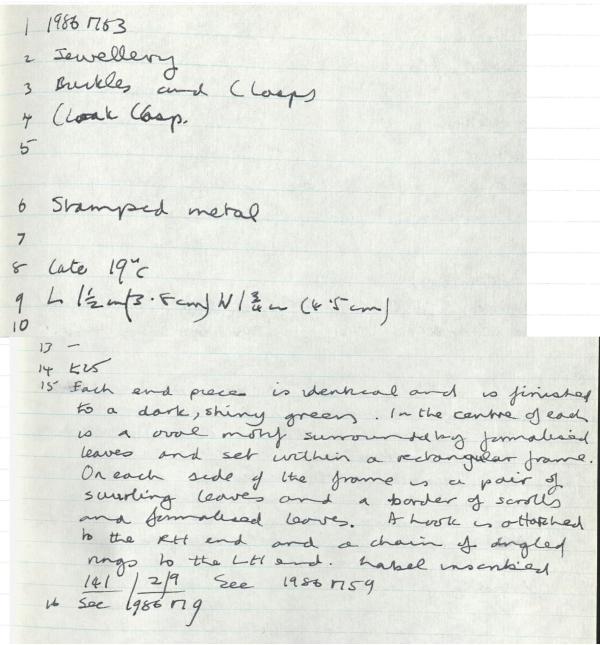 1 1986 M63
2 Jewellery
3 Buckles and Clasps
4 Cloak Clasp.
5
6 Stamped metal
7
8 late 19th c
9 L 1½ in (3.8 cm) W 1¾ in (4.5 cm)
10
13 -
14 £25
15 Each end piece is identical and is finished
to a dark, shiny green. In the centre of each
is a oval motif surrounded by formalised
leaves and set within a rectangular frame.
On each side of the frame is a pair of
swirling leaves and a border of scrolls
and formalised leaves. A hook is attached
to the RH end and a chain of angled
rings to the LH end. Label inscribed
141 / 2/9 See 1986 M59
16 See 1986 M9